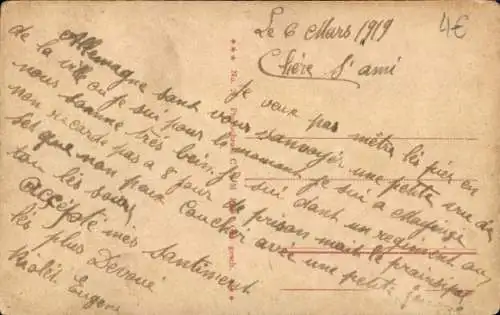 Le 6 Mars 1919
4€
Chère S'ami
Je veux pas métre les piez en
Allemagne sant vous s'anvoyér une petite vue du
de la ville ou je sui pour le momant je sui a Mayense
nous somme trés bein. je sui dant un regiment ou
non 8 jour de prison mait le prainsipal
set que non peux Coucher avec une petite
tou les soirs
accépte mes santiment
lés plus Devoué
Eugene